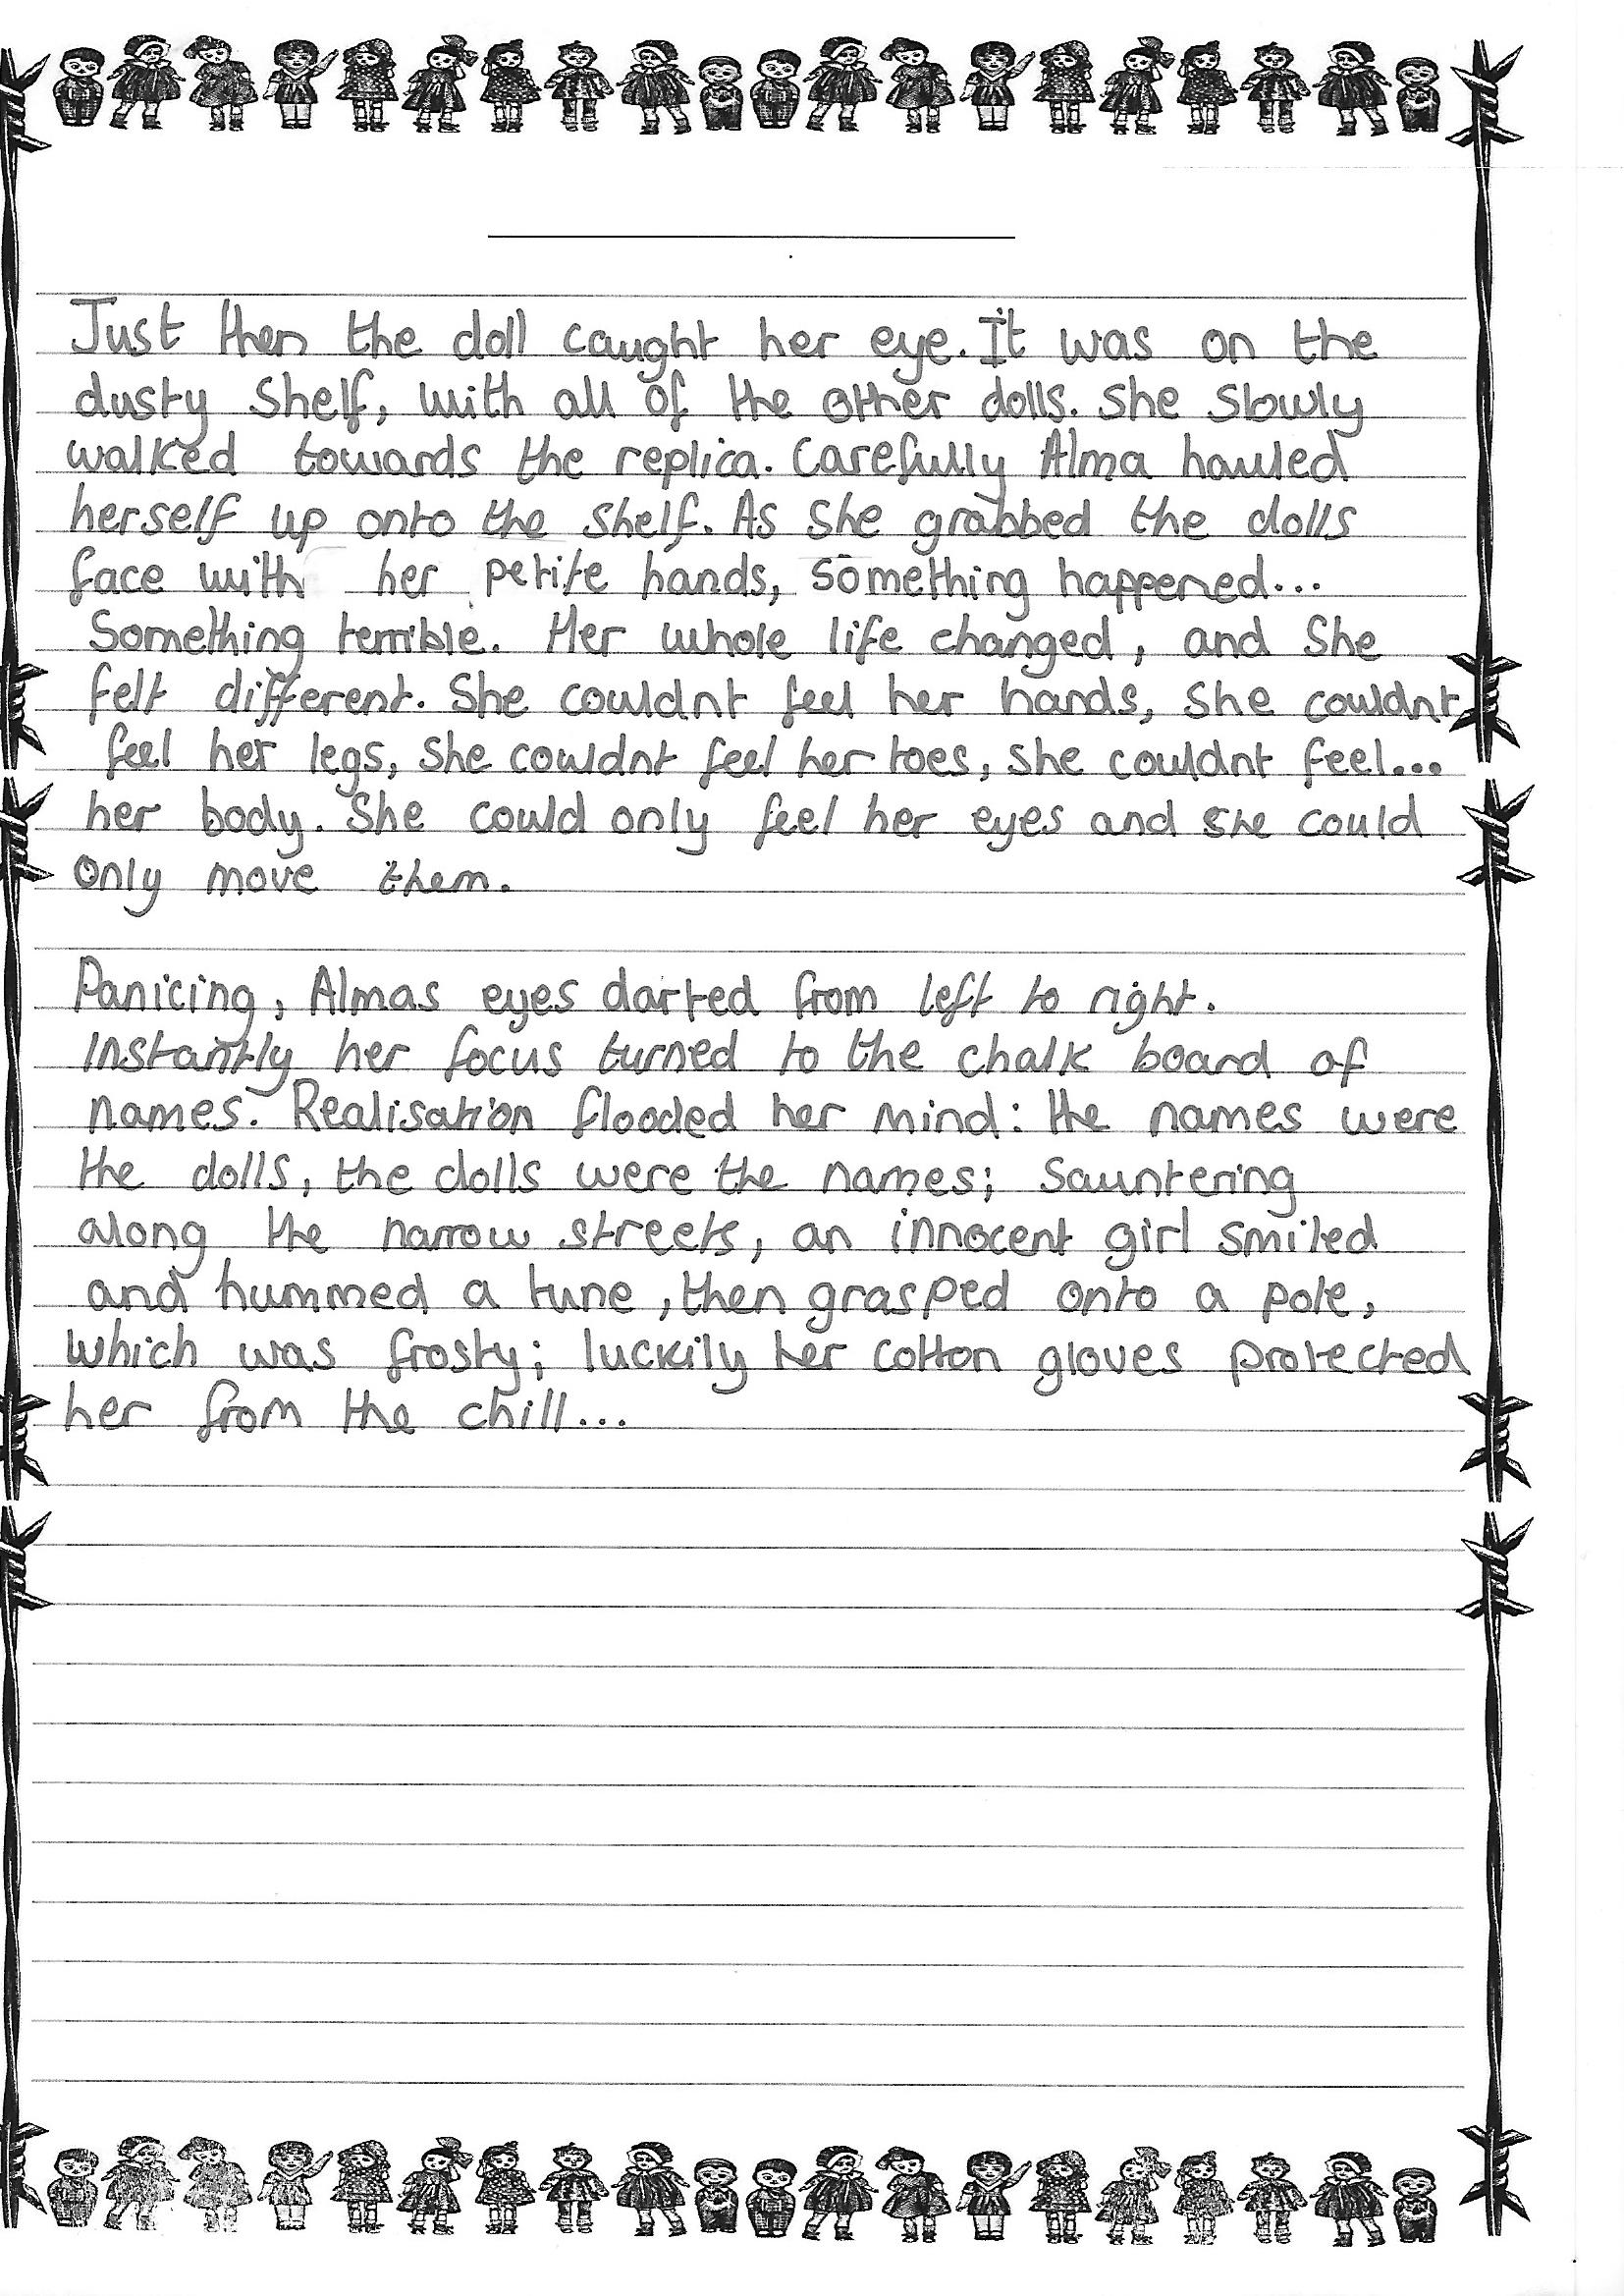 Just then the doll caught her eye. It was on the
dusty shelf, with all of the other dolls. She slowly
walked towards the replica. Carefully Alma hauled
herself up onto the shelf. As she grabbed the dolls
face with her petite hands, something happened...
Something terrible. Her whole life changed, and she
felt different. She couldnt feel her hands, she couldnt
feel her legs, she couldnt feel her toes, she couldnt feel...
her body. She could only feel her eyes and she could
only move them.
Panicing, Almas eyes darted from left to right.
Instantly her focus turned to the chalk board of
names. Realisation flooded her mind: the names were
the dolls, the dolls were the names; Sauntering
along the narrow streets, an innocent girl smiled
and hummed a tune, then grasped onto a pole,
which was frosty; luckily her cotton gloves protected
her from the chill...